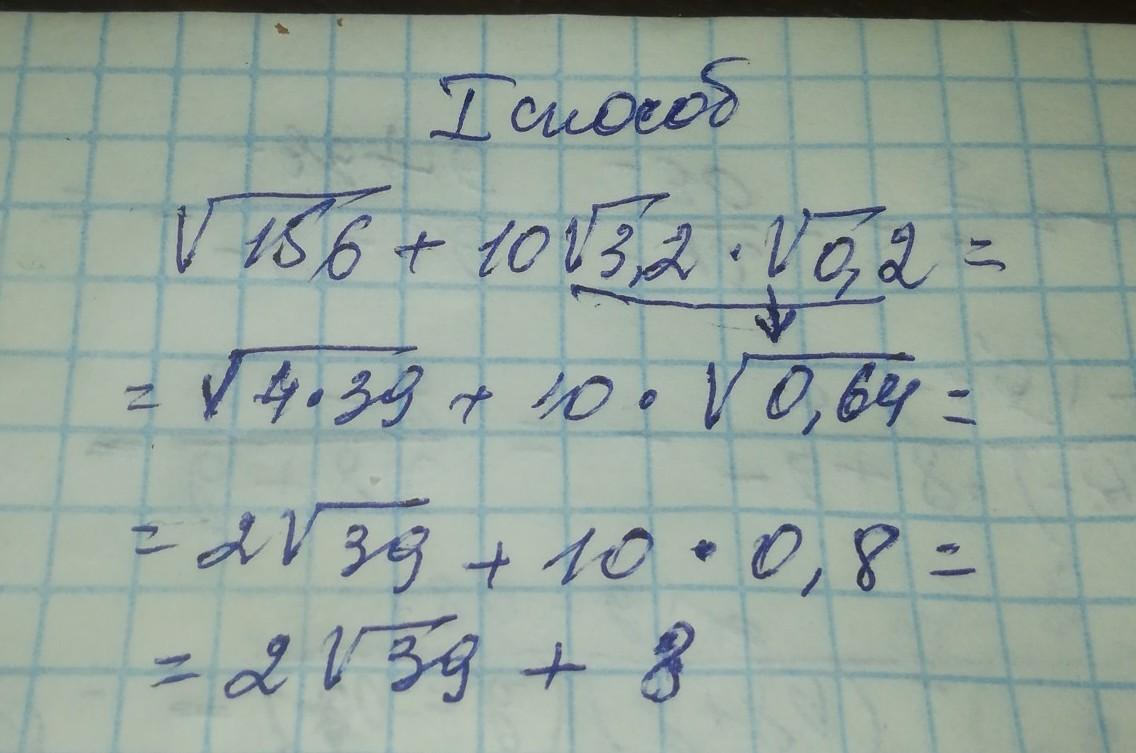 I способ
√156 + 10√3,2 · √0,2 =
= √4·39 + 10 · √0,64 =
= 2√39 + 10 · 0,8 =
= 2√39 + 8